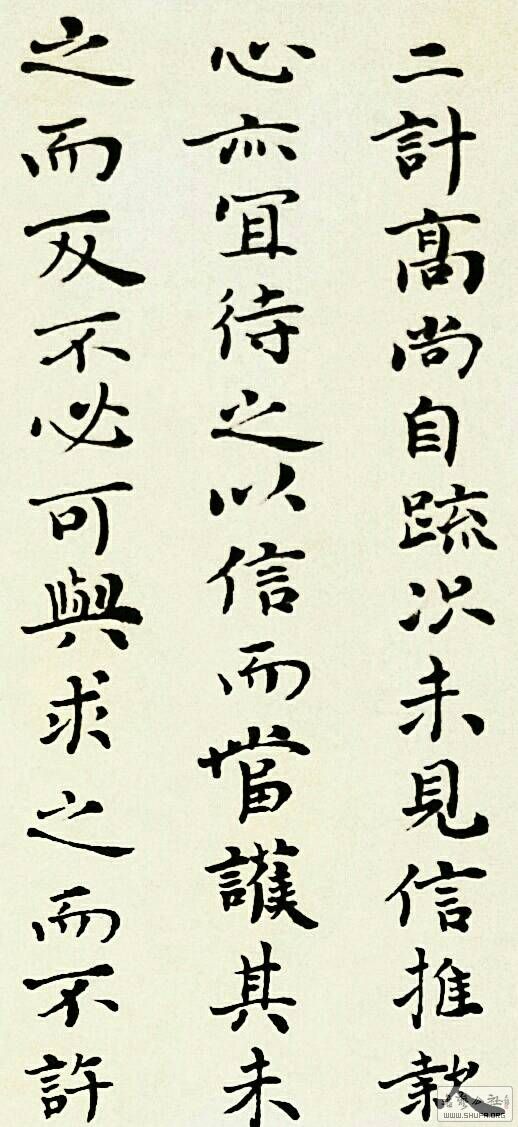 二計高尚自疏况未見信推款
心亦宜待之以信而當護其未
之而反不必可與求之而不許
WWW.SHUFA.ORG